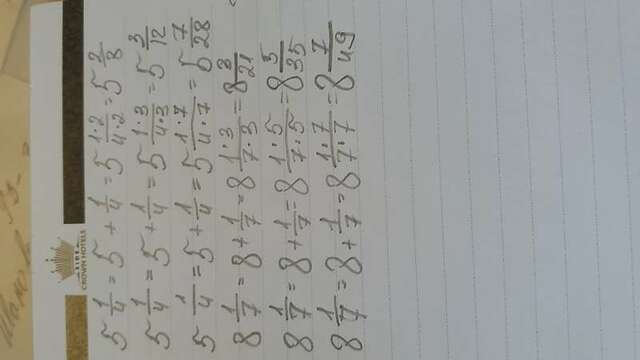 SIDE
CROWN HOTELS
5 1/4 = 5 + 1/4 = 5 1·2/4·2 = 5 2/8
5 1/4 = 5 + 1/4 = 5 1·3/4·3 = 5 3/12
5 1/4 = 5 + 1/4 = 5 1·7/4·7 = 5 7/28
8 1/7 = 8 + 1/7 = 8 1·3/7·3 = 8 3/21
8 1/7 = 8 + 1/7 = 8 1·5/7·5 = 8 5/35
8 1/7 = 8 + 1/7 = 8 1·7/7·7 = 8 7/49